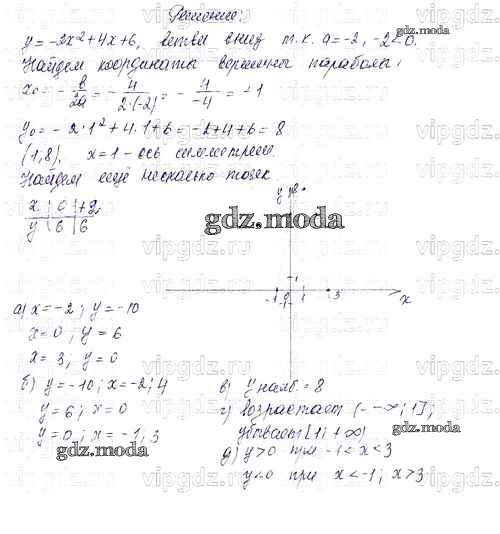 Решение:
y = -2x² + 4x + 6, ветви вниз т.к. a = -2, -2<0.
Найдем координаты вершины параболы:
x₀ = - в/2a = - 4/2·(-2) = - 4/-4 = +1
y₀ = - 2·1² + 4·1 + 6 = -2+4+6 = 8
(1,8), x = 1 - ось симметрии.
Найдем ещё несколько точек
x | 0 | +2
y | 6 | 6
y 8
-1 0 1 3 x
1
а) x = -2; y = -10
x = 0; y = 6
x = 3; y = 0
б) y = -10; x = -2; 4
y = 6; x = 0
y = 0; x = -1, 3
в) y наиб. = 8
г) возрастает (-∞; 1];
убывает [1; +∞)
д) y>0 при -1<x<3
y<0 при x<-1; x>3
gdz.moda
gdz.moda
gdz.moda
gdz.moda
gdz.moda
vipgdz.ru